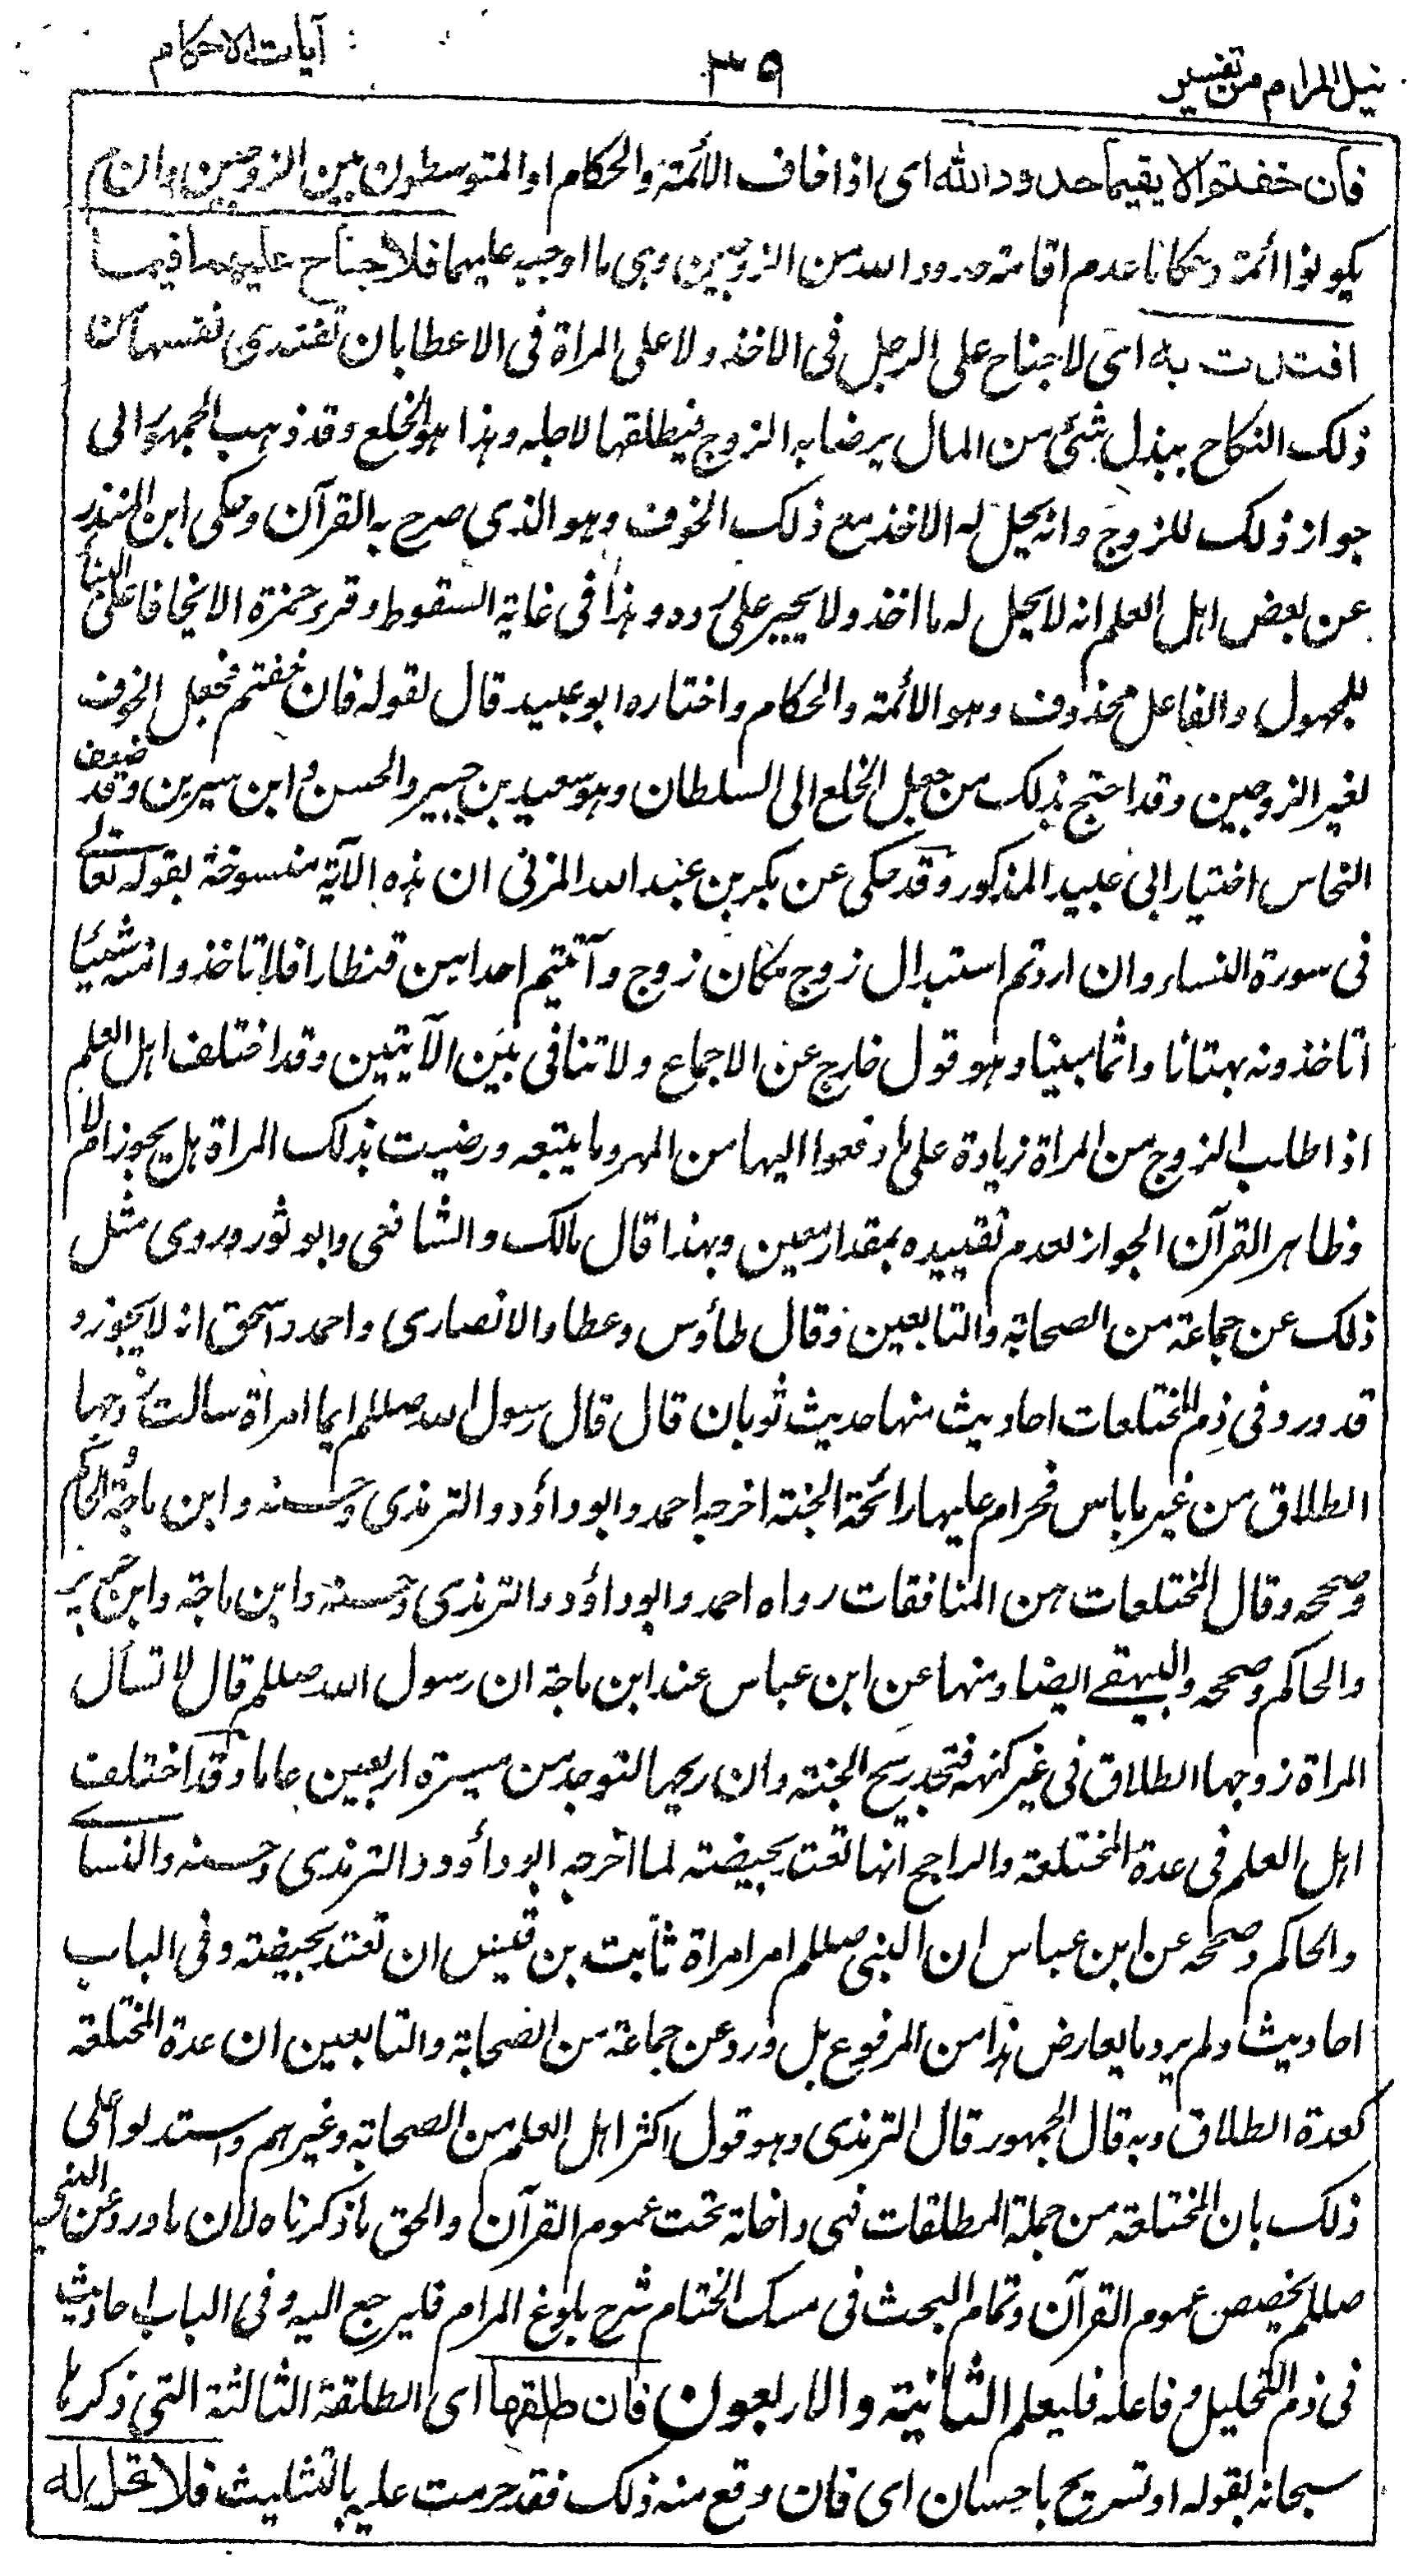 نيل المرام من تفسير
٣٩
آيات الاحكام
فان خفتم الا يقيما حدود الله اى اذا خاف الأئمة والحكام او المتوسطون بين الزوجين وان لم
يكونوا ائمة وحكاما عدم اقامة حدود الله من الزوجين وهى ما اوجب عليهما فلا جناح عليهما فيما
افتدت به اى لا جناح على الرجل فى الاخذ ولا على المرأة فى الاعطا بان تفتدى نفسها من
ذلك النكاح ببذل شئ من المال يرضا به الزوج فيطلقها لاجله وهذا هو الخلع وقد ذهب الجمهور الى
جواز ذلك للزوج وانه يحل له الاخذ مع ذلك الخوف وهو الذى صرح به القرآن وحكى ابن المنذر
عن بعض اهل العلم انه لا يحل له ما اخذ ولا يجبر على رده وهذا فى غاية السقوط وقرء حمزة الا يخافا على البناء
للمجهول والفاعل محذوف وهو الأئمة والحكام واختاره ابو عبيد قال لقوله فان خفتم فجعل الخوف
لغير الزوجين وقد احتج بذلك من جعل الخلع الى السلطان وهو سعيد بن جبير والحسن وابن سيرين وقد ضعف
النحاس اختيار ابى عبيد المذكور وقد حكى عن بكر بن عبد الله المزنى ان هذه الآية منسوخة بقوله تعالى
فى سورة النساء وان اردتم استبدال زوج مكان زوج وآتيتم احداهن قنطارا فلا تاخذوا منه شيئا
اتاخذونه بهتانا واثما مبينا وهو قول خارج عن الاجماع ولا تنافى بين الآيتين وقد اختلف اهل العلم
اذا طلب الزوج من المرأة زيادة على ما دفعوا اليها من المهر وما يتبعه ورضيت بذلك المراة هل يجوز ام لا
وظاهر القرآن الجواز لعدم تقييده بمقدار معين وبهذا قال مالك والشافعى وابو ثور وروى مثل
ذلك عن جماعة من الصحابة والتابعين وقال طاؤس وعطا والانصارى واحمد واسحق انه لا يجوز و
قد ورد فى ذم المختلعات احاديث منها حديث ثوبان قال قال رسول الله صللم ايما امرأة سالت زوجها
الطلاق من غير ما باس فحرام عليها رائحة الجنة اخرجه احمد وابو داؤد والترمذى وحسنه وابن ماجة والحاكم
وصححه وقال المختلعات هن المنافقات رواه احمد وابو داؤد والترمذى وحسنه وابن ماجة وابن جرير
والحاكم وصححه والبيهقى ايضا ومنها عن ابن عباس عند ابن ماجة ان رسول الله صللم قال لا تسأل
المراة زوجها الطلاق فى غير كنهه فتجد ريح الجنة وان ريحها لتوجد من مسيرة اربعين عاما وقد اختلف
اهل العلم فى عدة المختلعة والراجح انها تعتد بحيضة لما اخرجه ابو داؤد والترمذى وحسنه والنسائى
والحاكم وصححه عن ابن عباس ان النبى صللم امر امراة ثابت بن قيس ان تعتد بحيضة وفى الباب
احاديث ولم يرد ما يعارض هذا من المرفوع بل ورد عن جماعة من الصحابة والتابعين ان عدة المختلعة
كعدة الطلاق وبه قال الجمهور قال الترمذى وهو قول اكثر اهل العلم من الصحابة وغيرهم واستدلوا على
ذلك بان المختلعة من جملة المطلقات فهى داخلة تحت عموم القرآن والحق ما ذكرناه لان ما ورد عن النبى
صللم يخصص عموم القرآن وتمام البحث فى مسك الختام شرح بلوغ المرام فليرجع اليه وفى الباب احاديث
فى ذم التحليل وفاعله فليعلم الثانية والاربعون فان طلقها اى الطلقة الثالثة التى ذكرها
سبحانه بقوله او تسريح باحسان اى فان وقع منه ذلك فقد حرمت عليه بالتثليث فلا تحل له